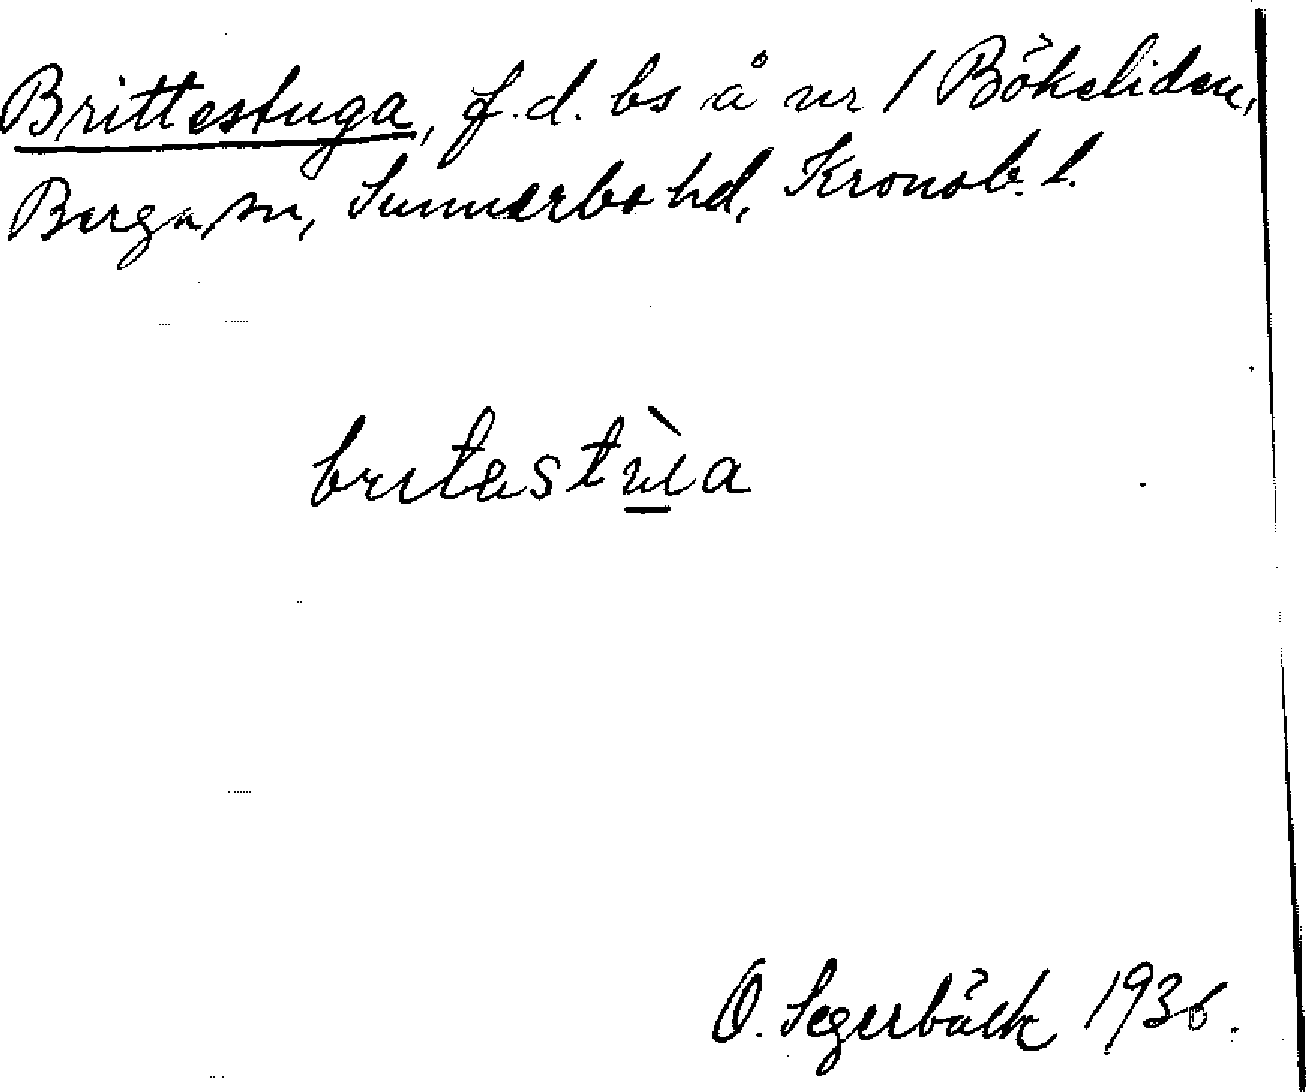 Brittestuga, f.d. bs å nr 1 Bökeliden,
Berga sn, Sunnerbo hd, Kronob. l.
O. Segerbäck 1936.